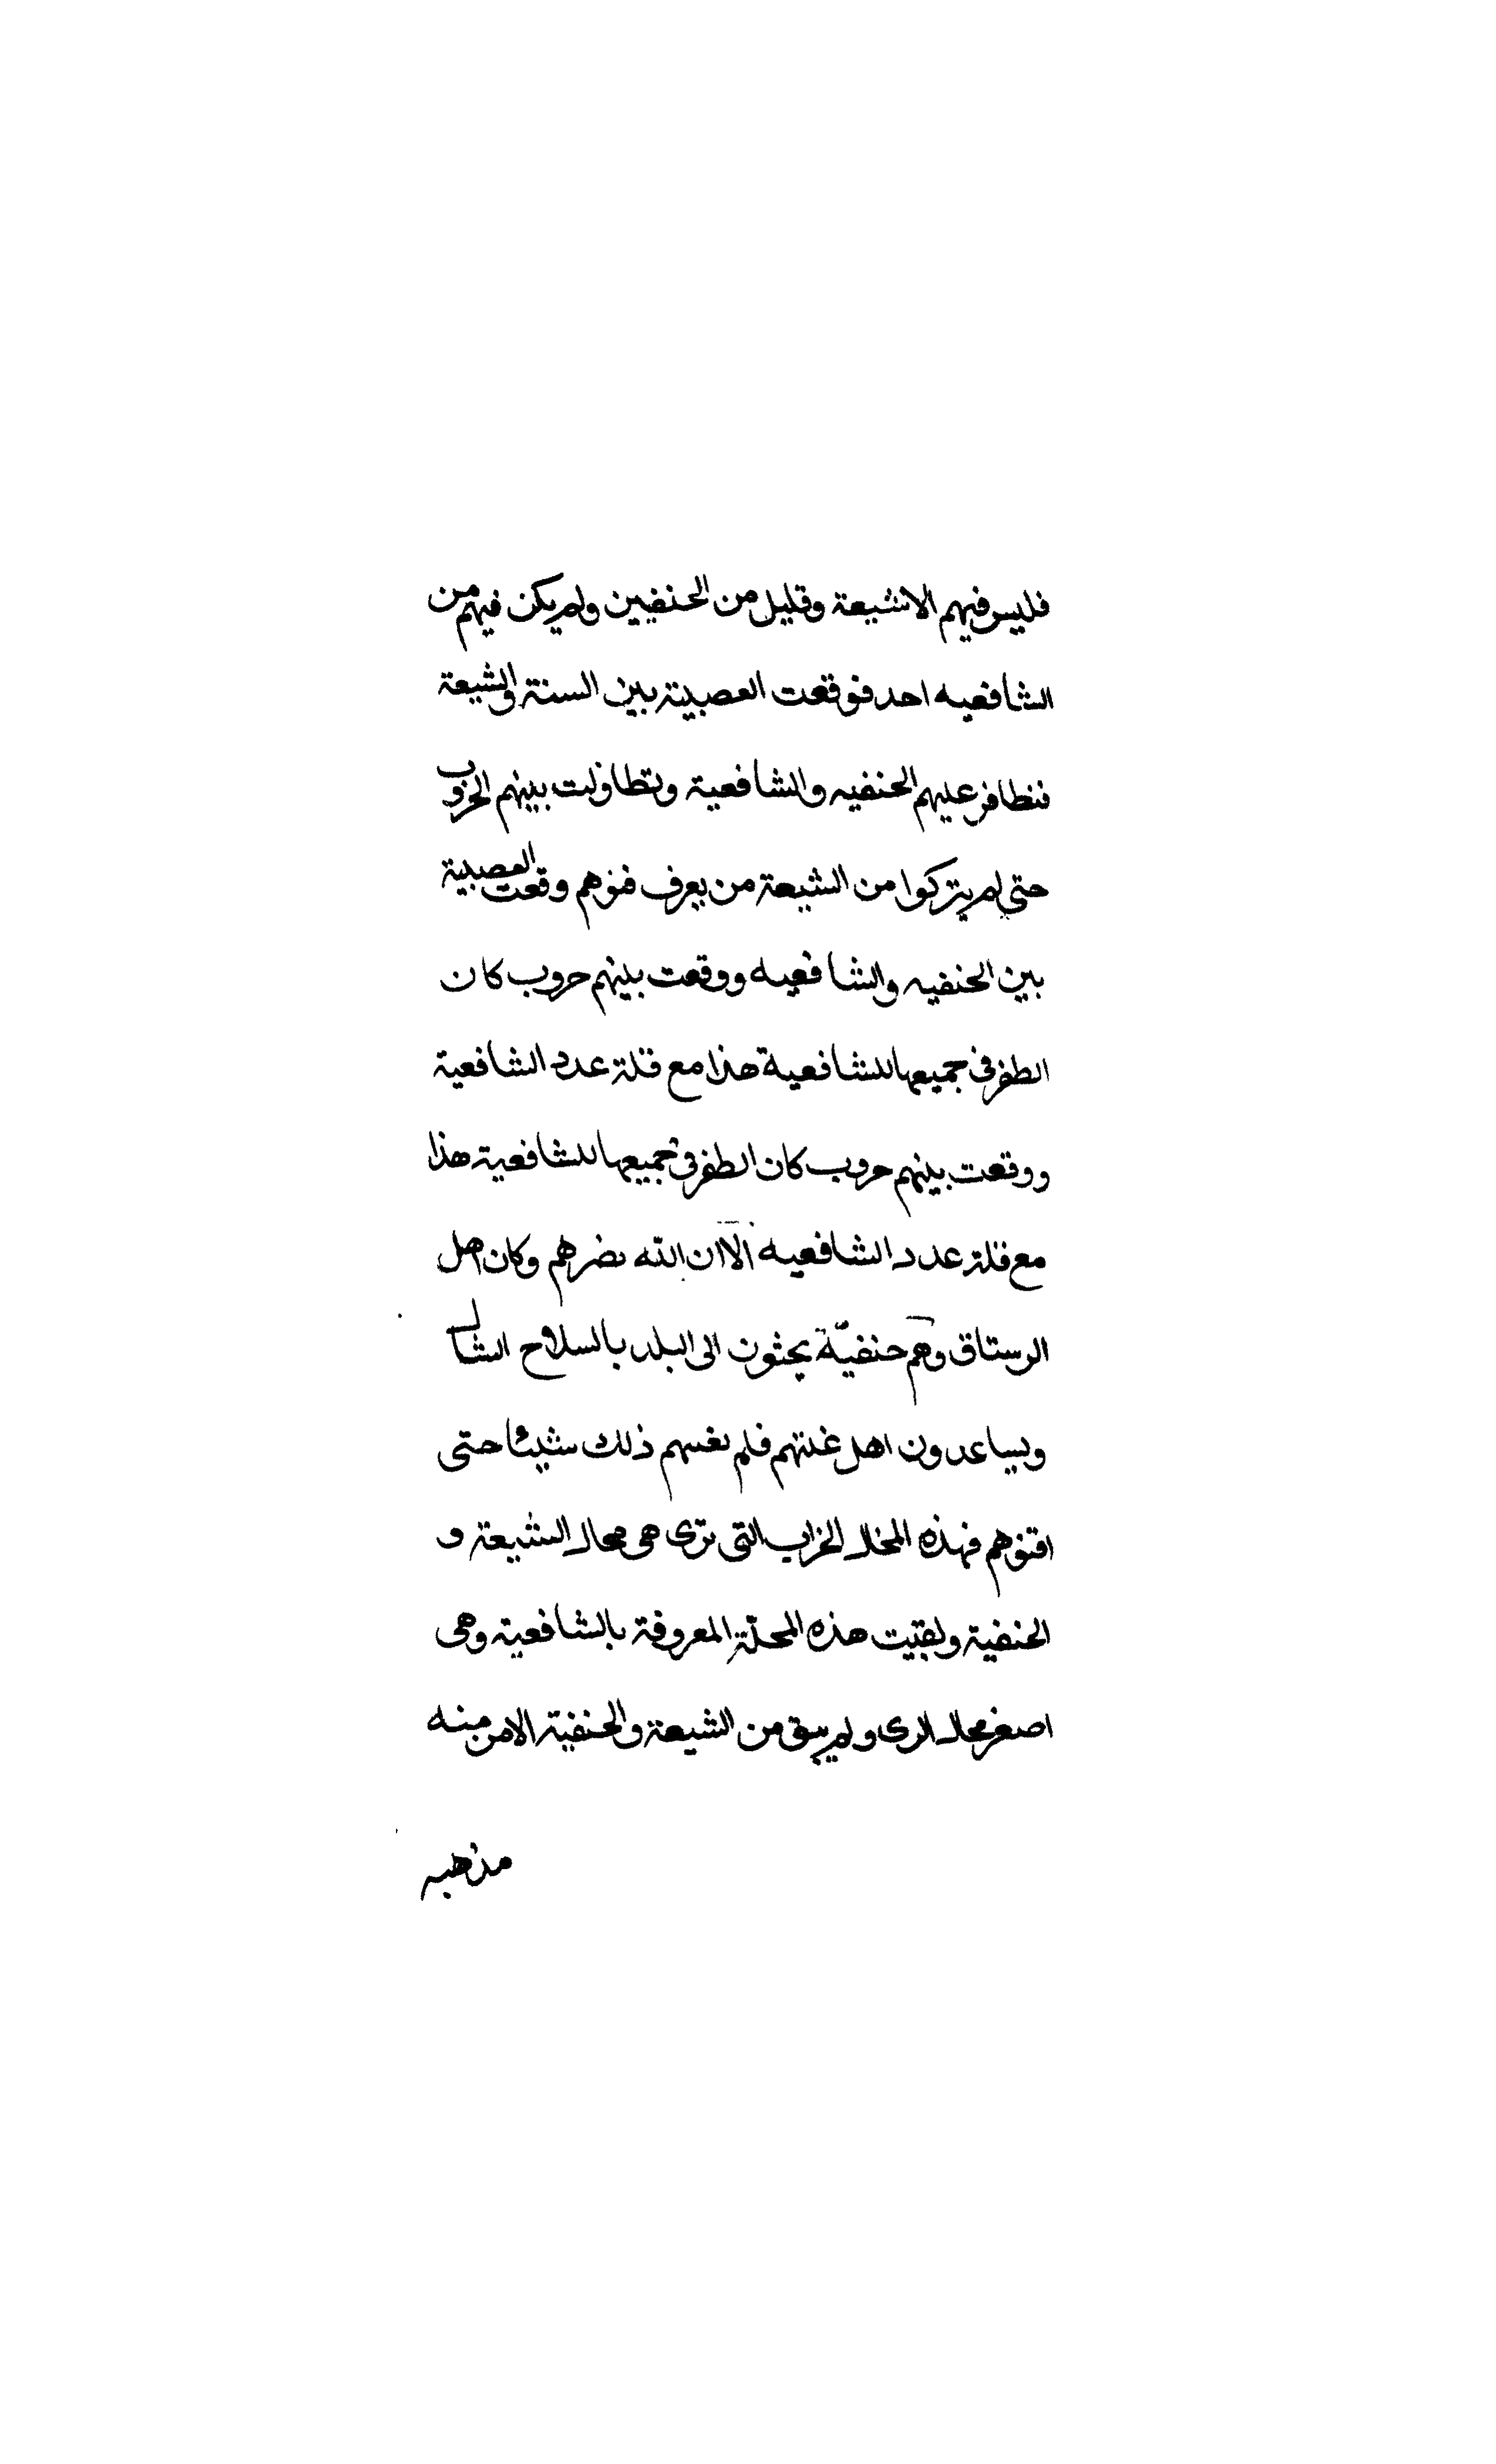 فليس فيهم الا شيعة وقليل من الحنفيين ولم يكن فيهم من
الشافعيه احد فوقعت العصبية بين السنة والشيعة
فتظافر عليهم الحنفيه والشافعية وتطاولت بينهم الحروب
حتى لم يتركوا من الشيعة من يعرف فنوهم وقعت العصبية
بين الحنفيه والشافعيه ووقعت بينهم حروب كان
الظفر في جميعها للشافعية هذا مع قلة عدد الشافعية
ووقعت بينهم حروب كان الظفر في جميعها للشافعية هذا
مع قلة عدد الشافعيه الا ان الله نصرهم وكان اهل
الرستاق وهم حنفيّة يجئون الى البلد بالسلاح الشاك
ويساعدون اهل فلم يغنهم ذلك شيئا حتى
افنوهم فهذه المحال الخراب التى ترى هى محال الشيعة و
الحنفية وبقيت هذه المحلّة المعروفة بالشافعية وهى
اصغر محال الرى ولم يبق من الشيعة والحنفية الا من
مذهبه